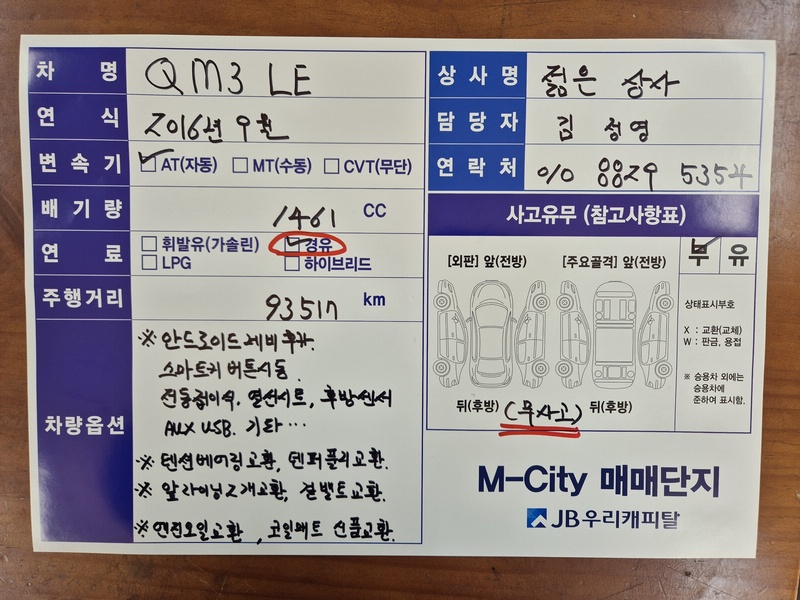 차 명 QM3 LE
연 식 2016년 9월
변 속 기 AT(자동) MT(수동) CVT(무단)
배 기 량 1461 CC
연 료 휘발유(가솔린) 경유
LPG 하이브리드
주행거리 93517 km
차량옵션
※ 안드로이드 네비 후카.
스마트키 버튼시동.
전동접이식. 열선시트, 후방센서
AUX USB. 기타…
※ 텐션베어링교환, 댐퍼풀리교환.
※ 알라이닝2개교환, 겉밸트교환.
※ 엔진오일교환, 코일매트 신품교환.
상 사 명 젊은 상사
담 당 자 김 정영
연 락 처 010 8829 5354
사고유무 (참고사항표)
[외판] 앞(전방) [주요골격] 앞(전방)
무 유
상태표시부호
X : 교환(교체)
W : 판금, 용접
※ 승용차 외에는
승용차에
준하여 표시함.
뒤(후방) (무사고) 뒤(후방)
M-City 매매단지
JB우리캐피탈